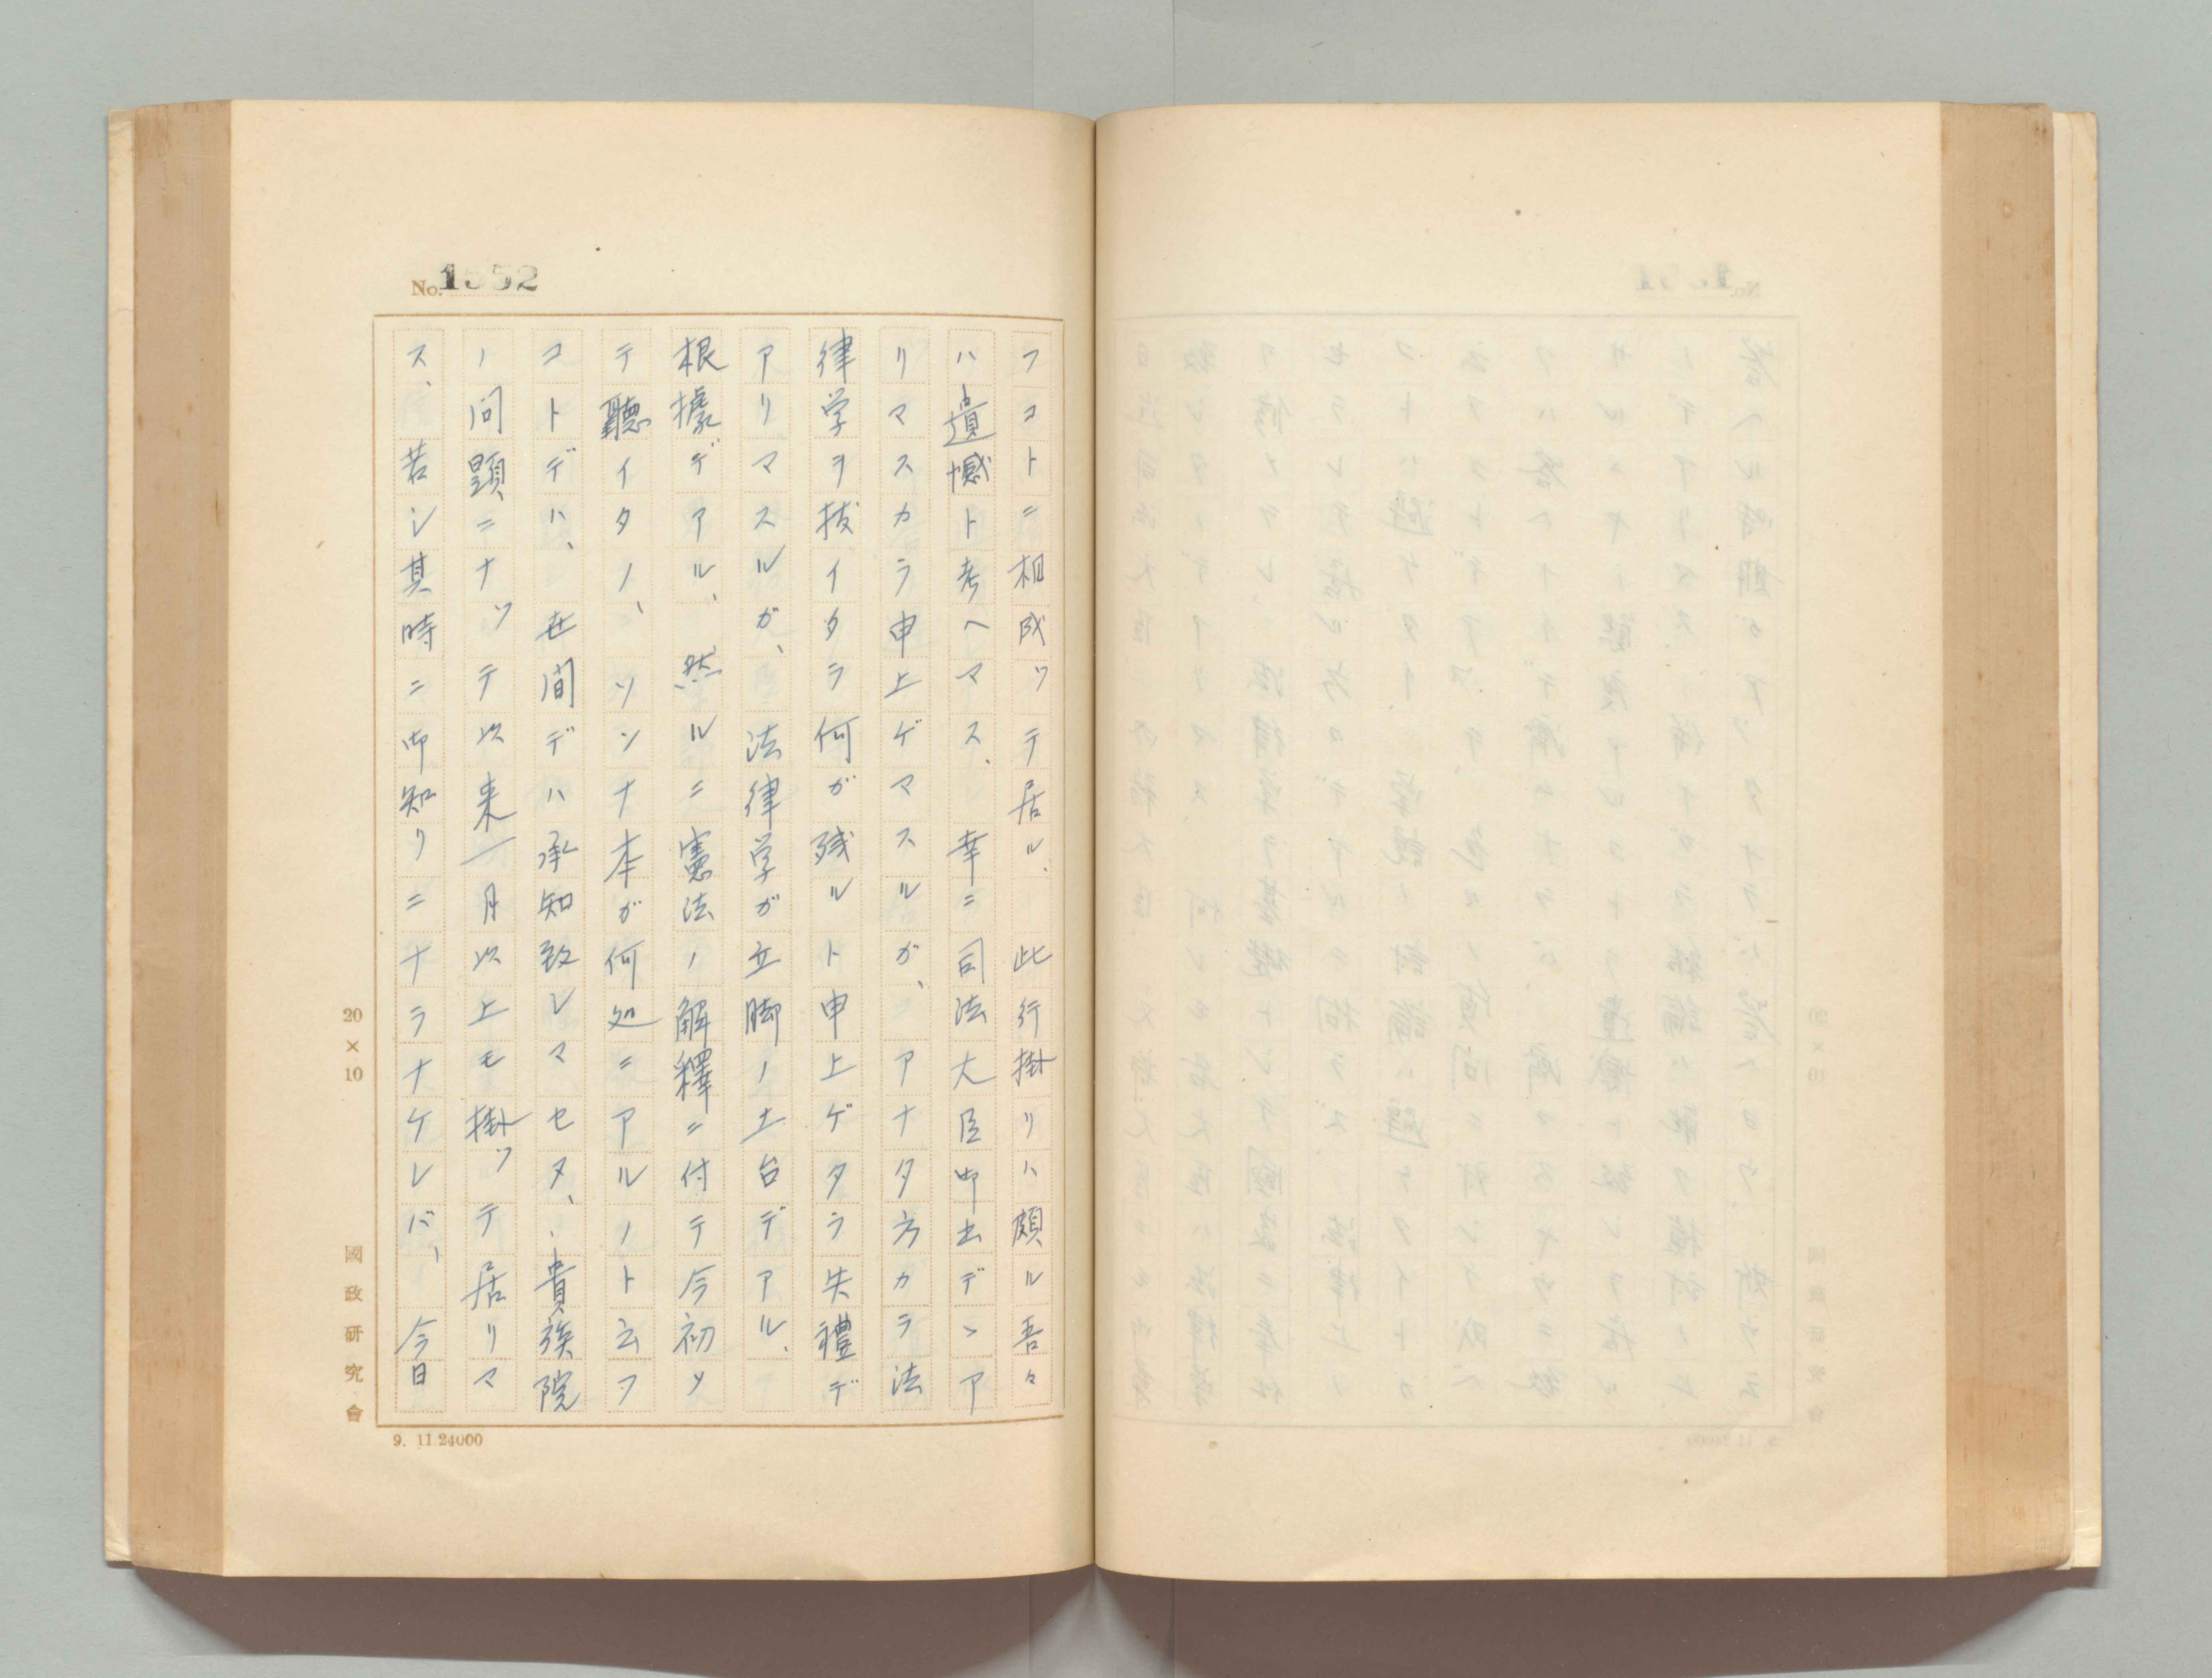 No. 1552
フコトニ相成ツテ居ル、此行掛リハ頗ル吾々
ハ遺憾ト考ヘマス、幸ニ司法大臣御出デヽア
リマスカラ申上ゲマスルガ、アナタ方カラ法
律学ヲ抜イタラ何ガ残ルト申上ゲタラ失禮デ
アリマスルガ、法律学ガ立脚ノ土台デアル、
根據デアル、然ルニ憲法ノ解釋ニ付テ今初メ
テ聽イタノ、ソンナ本ガ何処ニアルノト云フ
コトデハ、世間デハ承知致シマセヌ、貴族院
ノ問題ニナツテ以来一月以上モ掛ツテ居リマ
ス、若シ其時ニ御知リニナラナケレバ、今日
20×10
國政研究會
9. 11.24000